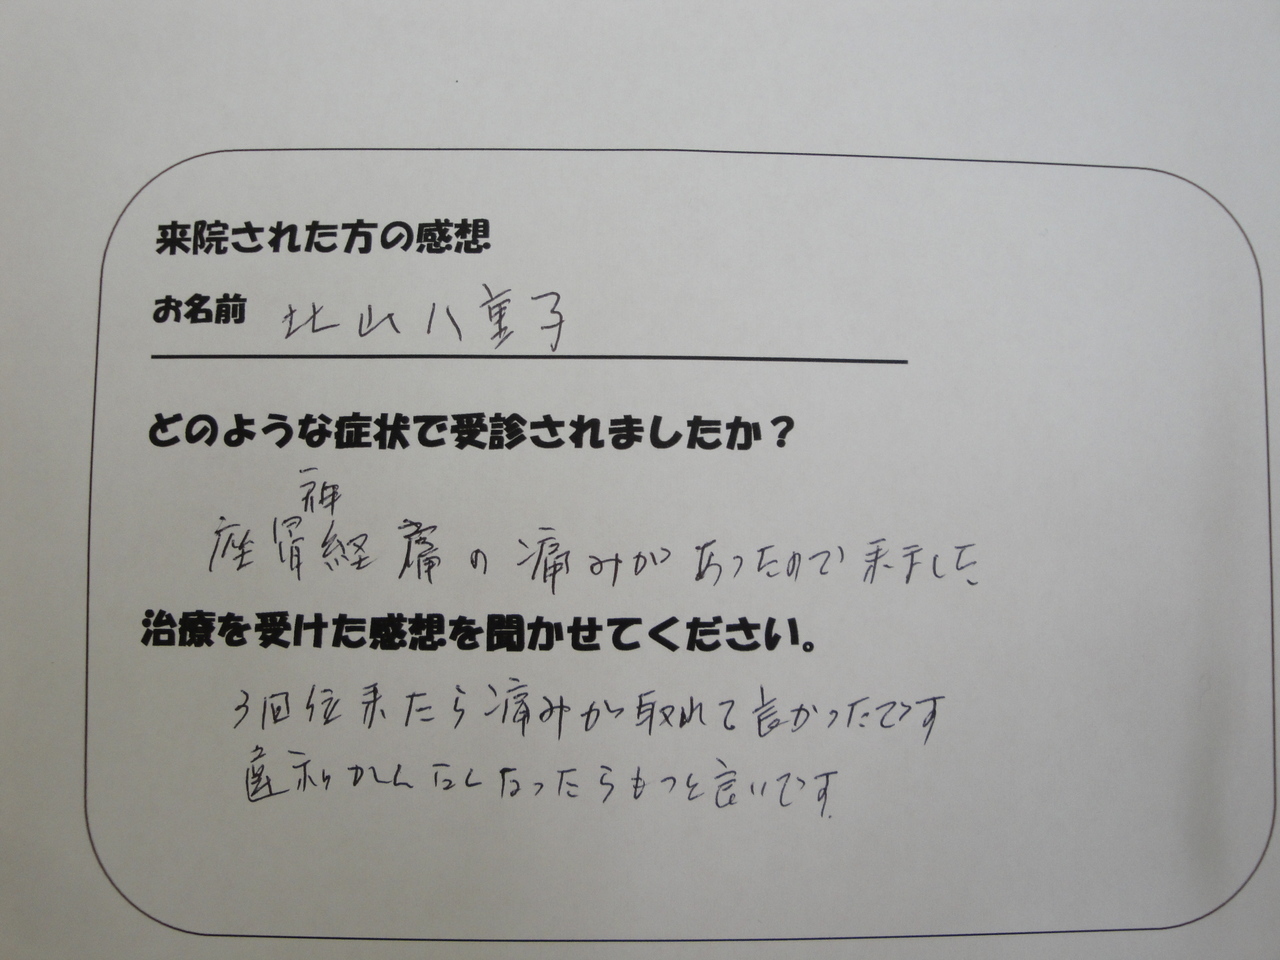 来院された方の感想
お名前 北山八重子
どのような症状で受診されましたか？
座骨神経痛の痛みがあったので来ました
治療を受けた感想を聞かせてください。
3回位来たら痛みが取れて良かったです
なったらもっと良いです